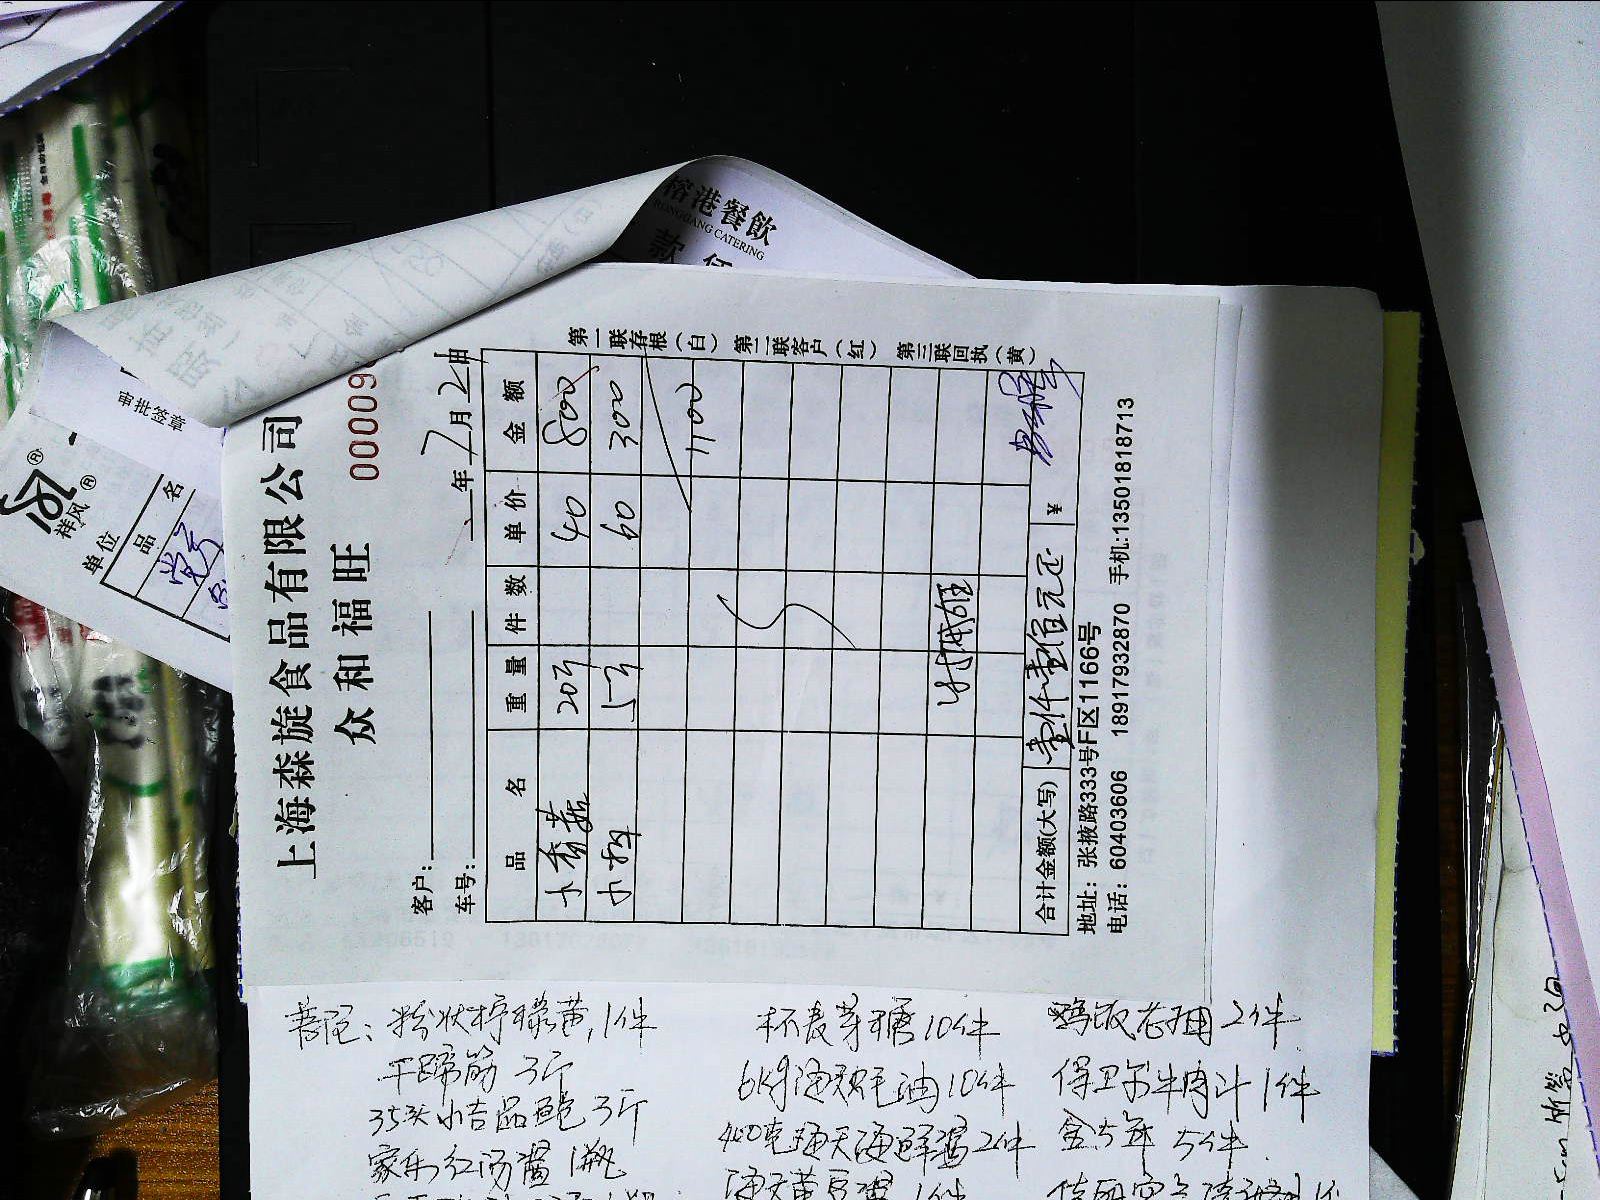 榕港餐飲
RONGGANG CATERING
审批签章
祥风
单位
品名
上海森旋食品有限公司
众和福旺
00009
客户：
车号： 年7月2日
品名 重量 件数 单价 金额
小香菇 20斤 40 800
5斤 60 300
1100
合计金额(大写) 壹仟壹佰元正 ¥
地址：张掖路333号F区1166号
电话：60403606 18917932870 手机:13501818713
第一联存根（白） 第二联客户（红） 第三联回执（黄）
粉状柠檬黄,1件
干蹄筋 3斤
35头小吉品鲍 3斤
家乐红汤酱 1瓶
杯麦芽糖10件
6kg海天蚝油10件
400克海天海鲜酱2件
海天黄豆酱 1件
鸡饭老抽 2件
保卫尔牛肉汁1件
金五年 5件